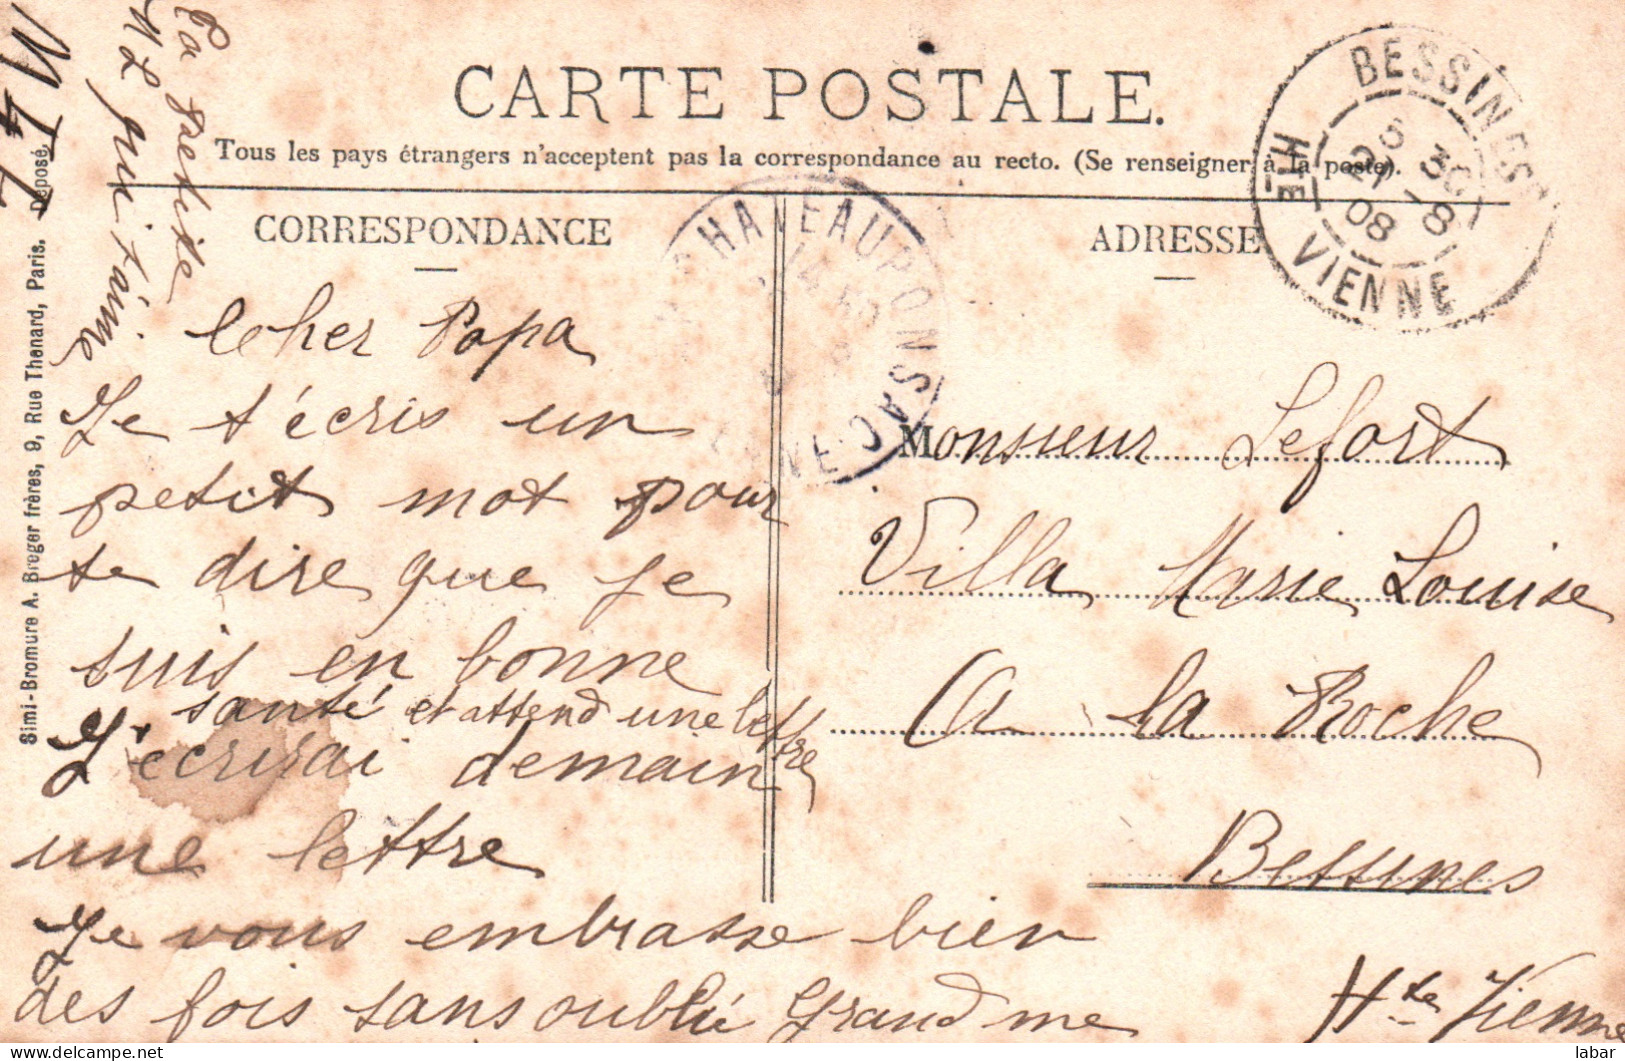 CARTE POSTALE.
Tous les pays étrangers n'acceptent pas la correspondance au recto. (Se renseigner à la poste).
CORRESPONDANCE
ADRESSE
BESSINES
HTE VIENNE
21 -8
08
CHATEAUPONSAC
Cher Papa
Je t'écris un
petit mot pour
te dire que je
suis en bonne
santé et attend une lettre
J'ecrirai demain
une lettre
Je vous embrasse bien
des fois sans oublié Grand me
Ta petite
M L qui t'aime
M L L
Monsieur Lefort
Villa Marie Louise
A la Roche
Bessines
Hte Vienne
Simi-Bromure A. Breger frères, 9, Rue Thenard, Paris. Déposé.
labar